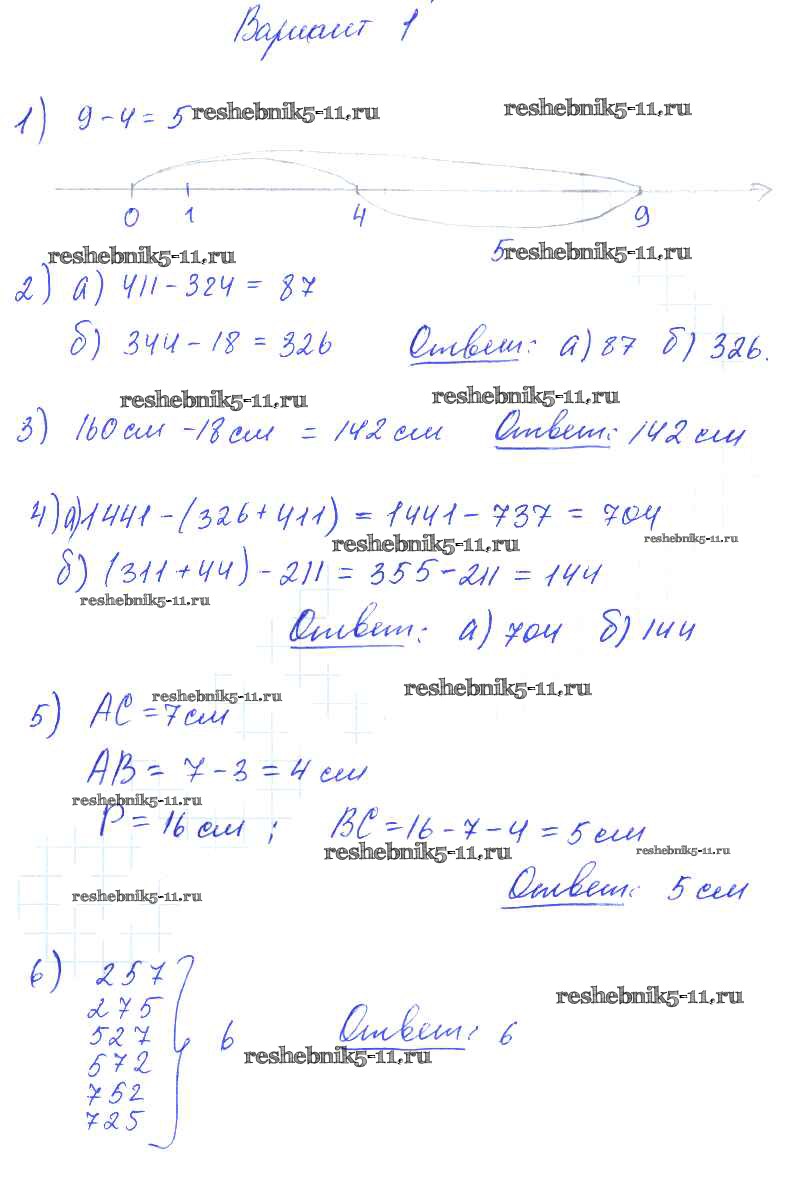 Вариант 1
1) 9 - 4 = 5 reshebnik5-11.ru reshebnik5-11.ru
0 1 4 9
reshebnik5-11.ru 5 reshebnik5-11.ru
2) а) 411 - 324 = 87
б) 344 - 18 = 326 Ответ: а) 87 б) 326.
reshebnik5-11.ru reshebnik5-11.ru
3) 160 см - 18 см = 142 см Ответ: 142 см
4) а) 1441 - (326 + 411) = 1441 - 737 = 704
reshebnik5-11.ru reshebnik5-11.ru
б) (311 + 44) - 211 = 355 - 211 = 144
reshebnik5-11.ru
Ответ: а) 704 б) 144
reshebnik5-11.ru reshebnik5-11.ru
5) AC = 7 см
AB = 7 - 3 = 4 см
reshebnik5-11.ru
P = 16 см; BC = 16 - 7 - 4 = 5 см
reshebnik5-11.ru reshebnik5-11.ru
reshebnik5-11.ru Ответ: 5 см
6) 257
275 reshebnik5-11.ru
527 6 Ответ: 6
572 reshebnik5-11.ru
752
725